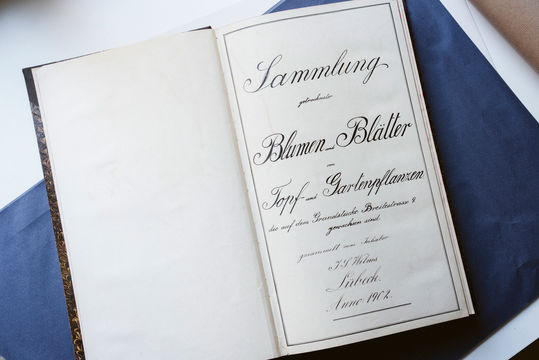 Sammlung
getrockneter
Blumen und Blätter
von
Topf- und Gartenpflanzen
die auf dem Grundstücke Breitestrasse 8
gewachsen sind.
gesammelt vom
Wilms
Lübeck.
Anno 1902.